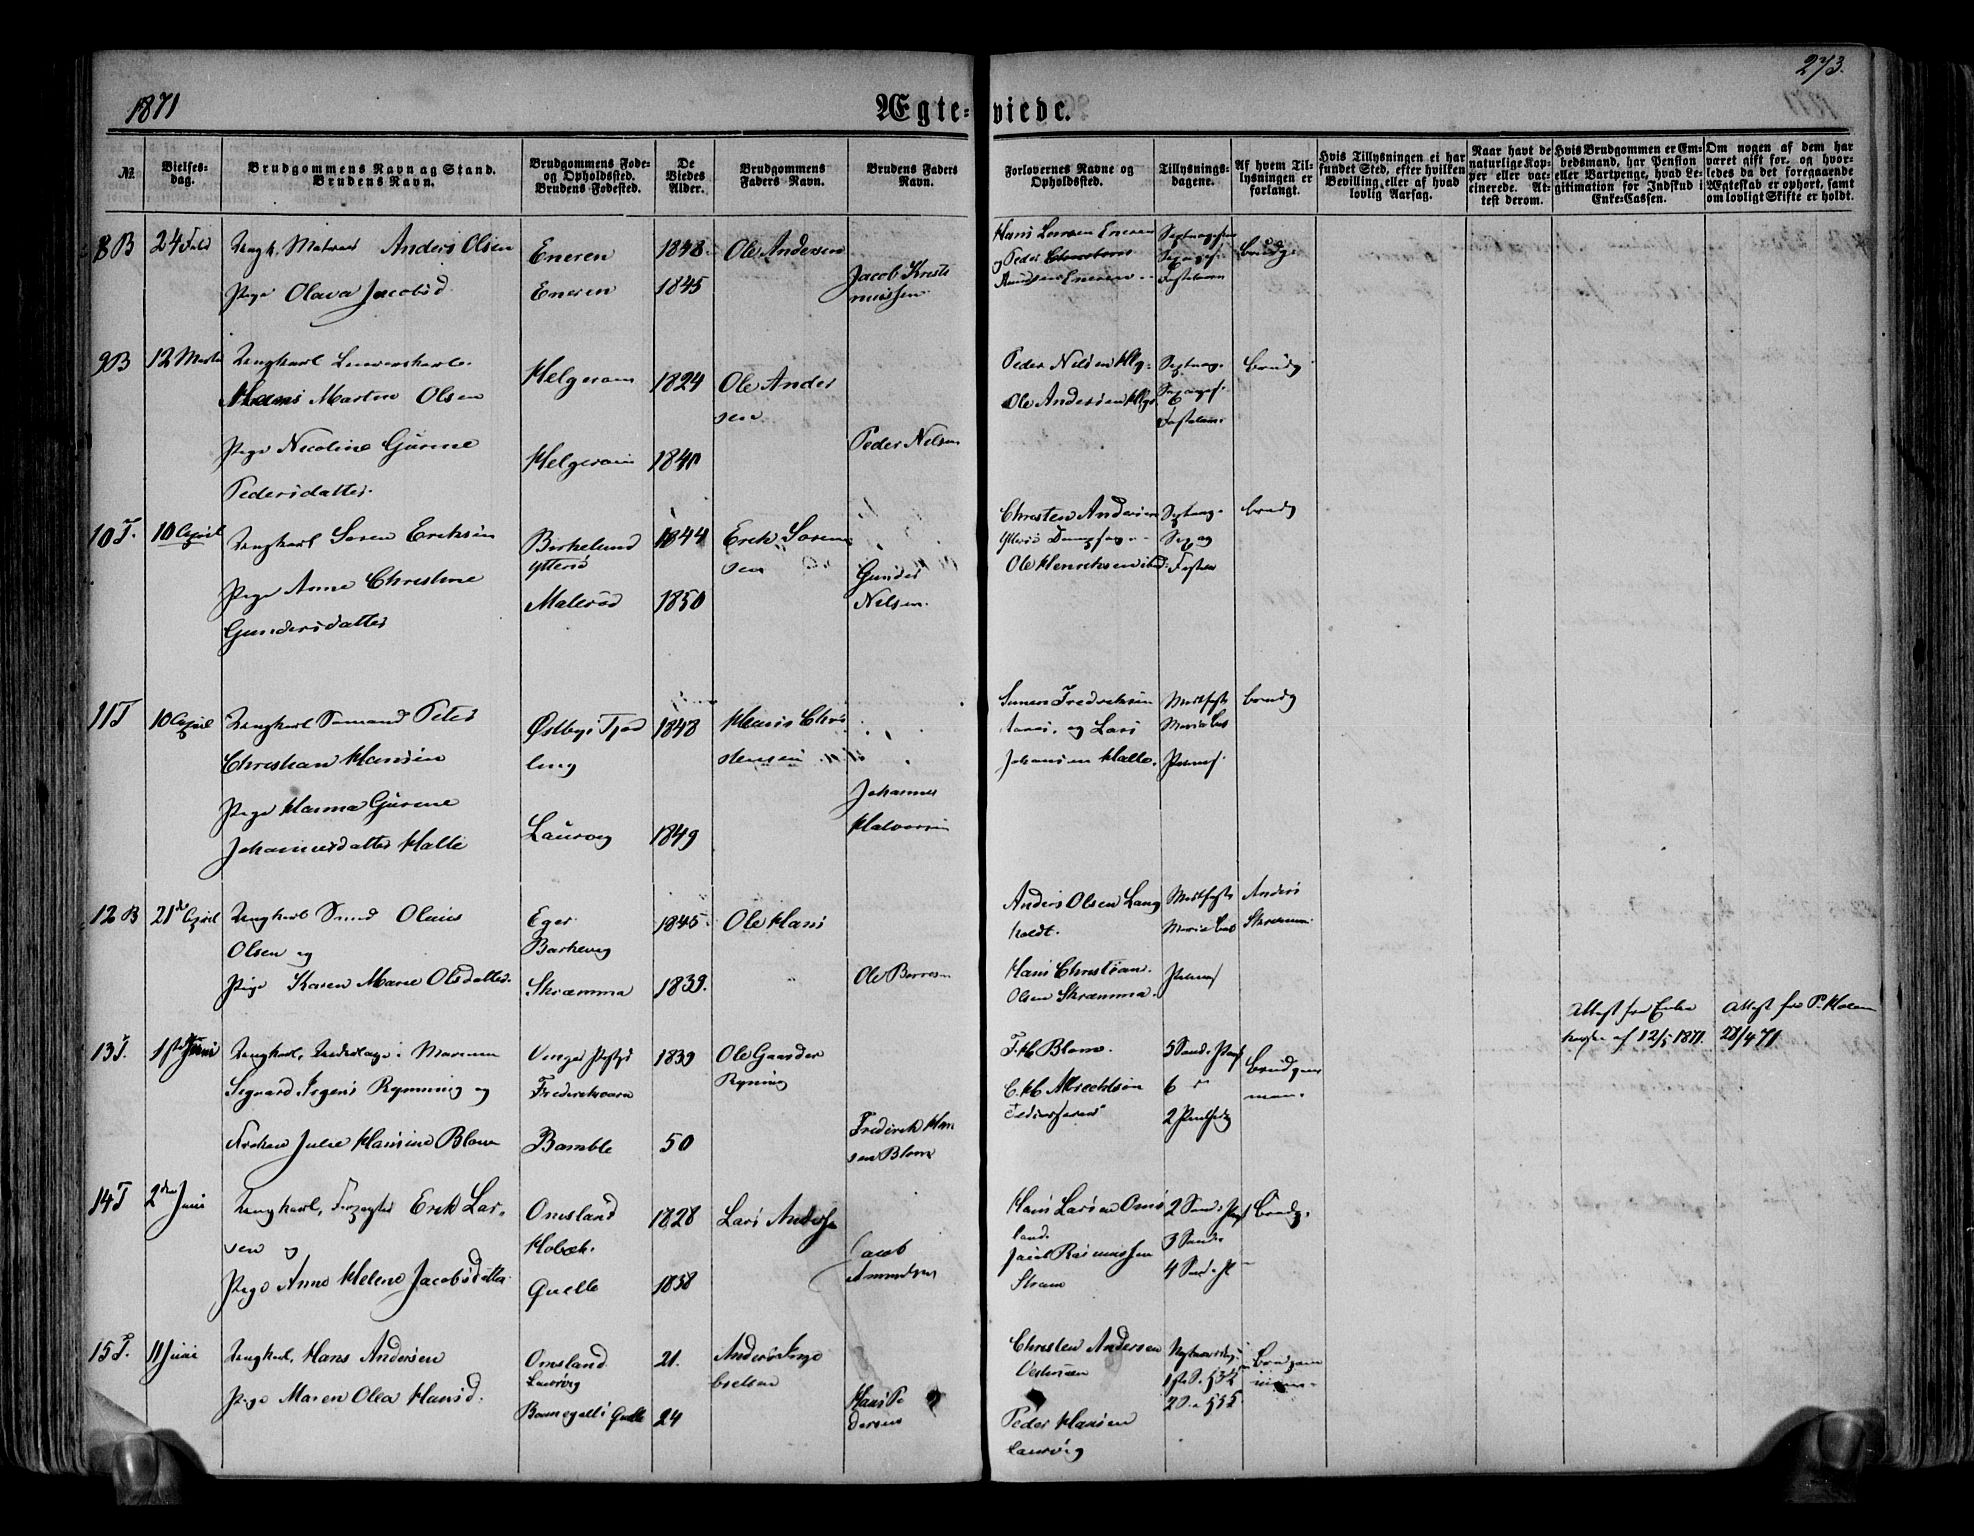 273.
1871
Ægte-viede.
№
Vielses-
dag.
Brudgommens Navn og Stand.
Brudens Navn.
Brudgommens Føde-
og Opholdssted.
Brudens Fødested.
De
Viedes
Alder.
Brudgommens
Faders Navn.
Brudens Faders
Navn.
Forlovernes Navne og
Opholdssted.
Tillysnings-
dagene.
Af hvem Til-
lysningen er
forlangt.
Hvis Tillysningen ei har
fundet Sted, efter hvilken
Bevilling eller af hvad
lovlig Aarsag.
Naar havt de
naturlige Kop-
per eller vac-
cinerede. At-
test derom.
Hvis Brudgommen er Em-
bedsmand, har Pension
eller Vartpenge, hvad Le-
gitimation for Indskud i
Enke-Cassen.
Om nogen af dem har
været gift før, og hvor-
ledes da det foregaaende
Ægteskab er ophørt, samt
om lovligt Skifte er holdt.
8 B
24 Feb
Ungk. Matros Anders Olsen
Pige Olava Jacobsd
Eneren
Eneren
1848
1845
Ole Andersen
Jacob Kristi
Hans Larsen Eneren
og Peder
Eneren
Brudg.
9 B
12 Marts
Ungkarl
Hans Martin Olsen
Pige Nicoline Gurine
Pedersdatter
Helgeroa
Helgeroa
1824
1840
Ole Ander
sen
Peder Nilsen
Peder Nilsen Hlg.
Ole Andersen Hlg.
Septuag.
Sexages.
Fastelavn.
brudg
10 T.
10 April
Ungkarl Soren Eriksen
Pige Anne Christine
Gundersdatter
Birkelund
Ytterød
Malerød
1844
1850
Erik Soren
sen
Gunder
Nilsen.
Christen Andersen
Ytterø
Ole Henriksen ibd.
Septuag.
Sex og
Fastel
brudg
11 T
10 April
Ungkarl Sømand Peter
Christian Hansen
Pige Hanna Gurine
Johannesdatter Halle
Østby i Tjød
ling
Laurvig
1848
1849
Hans Chri
stensen
Johannes
Halvorsen
Simen Fredriksen
og Lars
Johansen Halle.
Midtfaste
Maria Bud
Palmes.
brudg
12 B
21de April
Ungkarl Smed Olaus
Olsen og
Pige Karen Marie Olsdatter.
Eger
Barkevig
Skræmma
1845
1839.
Ole Hans
Ole Børresen
Anders Olsen Lang
holdt.
Hans Christian
Olsen Skræmma.
Midtfaste
Maria Bud
Palmes
Anders
Skræmma
13 T.
1ste Juni
Ungkarl,
Sigvard Irgens Rynning og
Frøken Julie Hansine Blom
Fredriksværn
Bamble
1839
50
Ole Gaarder
Rynning
Frederik Han
sen Blom
F. H. Blom.
C. H. Albrechtsen
5 Sønd. i Paas
6 "
Brudgom
men.
Attest fra Enke
kassen af 12/5 1871.
Attest fra P. Holm
28/4 71
14 T
2den Juni
Ungkarl, Forpagter Erik Lar-
sen og
Pige Anne Helene Jacobsdatter
Omsland
Holbæk.
Qvelle
1828
1838
Lars Anderss
Jacob
Amundsen
Hans Larsen Oms
land.
Jacob Rasmussen
2 Sønd.
3 Sønd.
4 Sønd.
brudg.
15 T.
11 Juni
Ungkarl, Hans Andersen
Pige Maren Olea Hansd.
Omsland
Laurvig
Qvelle
21.
24
Anders Inge
bretsen
Hans Pe
dersen
Christen Andersen
Peder Hansen
Laurvig
Brudgom
men.